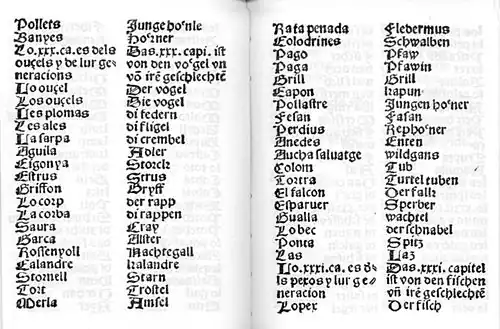 Pollets Junge hoͤnle
Banyes hoͤrner
Lo.xxx.ca.es dels Das.xxx.capi. ist
ouçels y de lur ge- von den voͤgel vn
neracions võ irẽ geschlechtẽ
Lo ouçel Der vogel
Los ouçels Die vogel
Les plomas di federn
Les ales di fligel
La sarpa di crembel
Aguila Adler
Cigonya Storck
Estrus Strus
Griffon Gryff
Lo corp der rapp
La corba di rappen
Saura Cray
Garca Alster
Rossenyoll Nachtegall
Calandre Kalandre
Stornell Starn
Tort Trostel
Merla Amsel
Rata penada Fledermus
Colodrines Schwalben
Pago Pfaw
Paga Pfawin
Grill Grill
Capon kapun
Pollastre Jungen hoͤner
Fesan Fasan
Perdius Rephoͤner
Anedes Enten
Aucha saluatge wildgans
Colom Tub
Tortra Turtel tuben
El falcon Der falk
Esparuer Sperber
Gualla wachtel
Lo bec der schnabel
Ponta Spitz
Las Laz
Lo.xxxi.ca. es d̃- Das.xxxi.capitel
ls pexos y lur ge- ist von den fischen
neracion vñ irẽ geschlechtẽ
Lo pex Der fisch